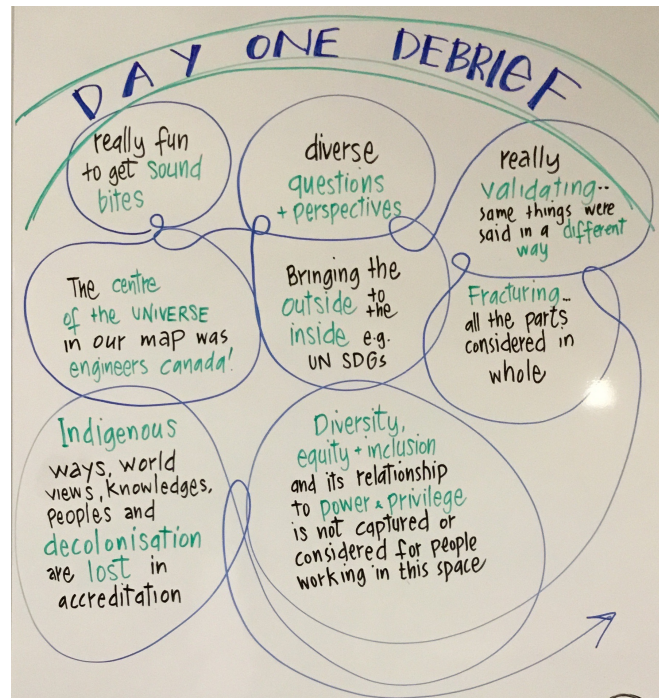 DAY ONE DEBRIEF
really fun
to get sound
bites
diverse
questions
+ perspectives
really
validating..
same things were
said in a different
way
The centre
of the UNIVERSE
in our map was
engineers canada!
Bringing the
outside to
the
inside e.g.
UN SDGs
Fracturing...
all the parts
considered in
whole
Indigenous
ways, world
views, knowledges,
peoples and
decolonisation
are lost in
accreditation
Diversity,
equity + inclusion
and its relationship
to power & privilege
is not captured or
considered for people
working in this space